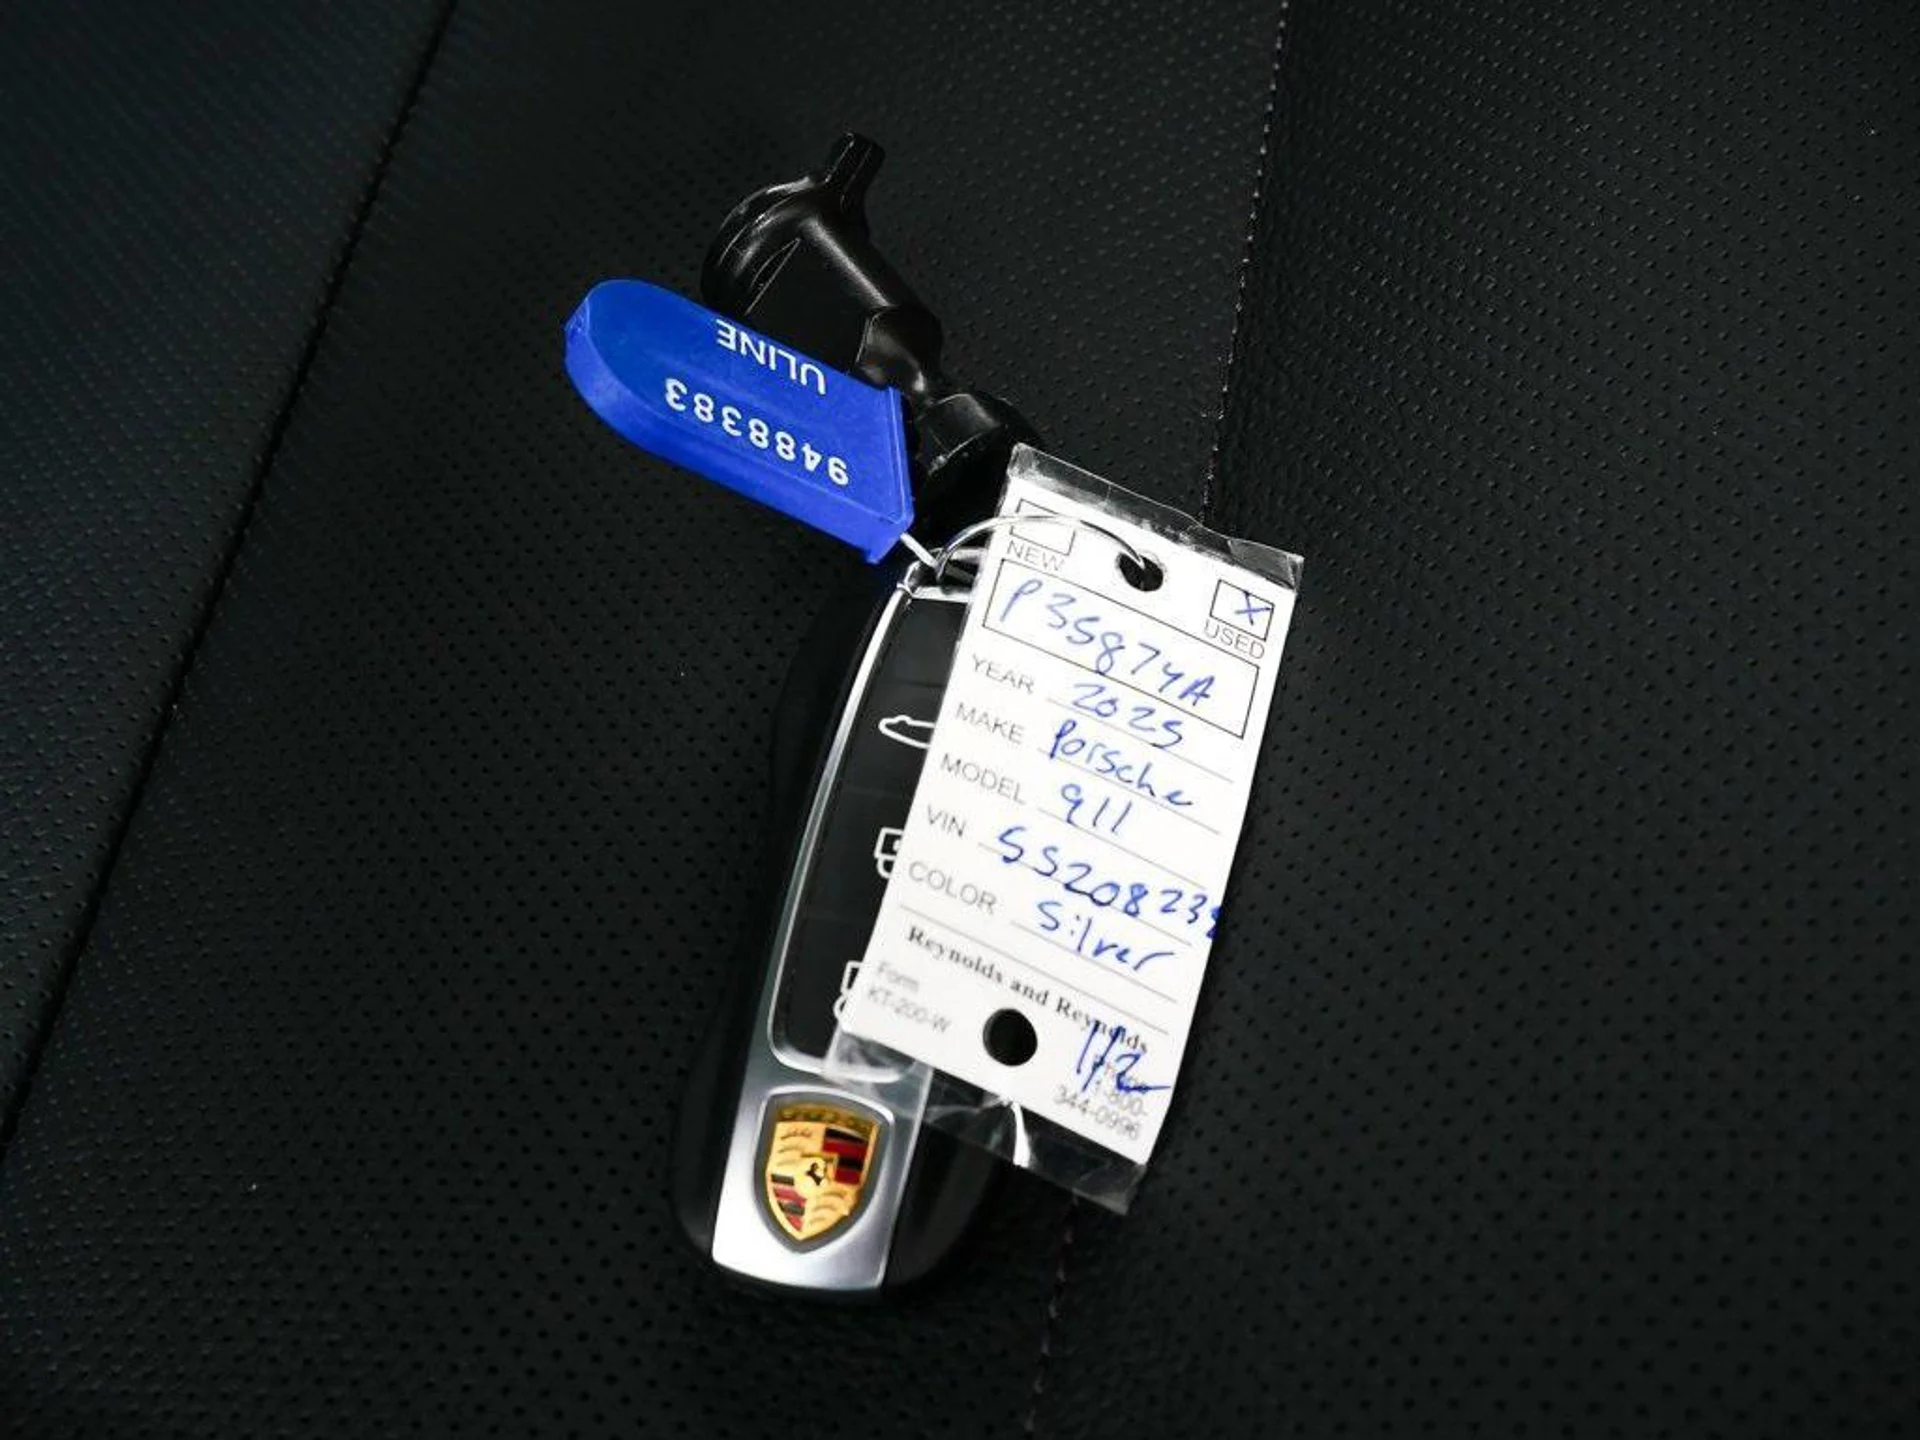 ULINE
9488383
NEW
X
USED
P35874A
YEAR 2025
MAKE Porsche
MODEL 911
VIN SS20823
COLOR Silver
Reynolds and Reynolds
Form
KT-200-W
1/2
1-800-
344-0996